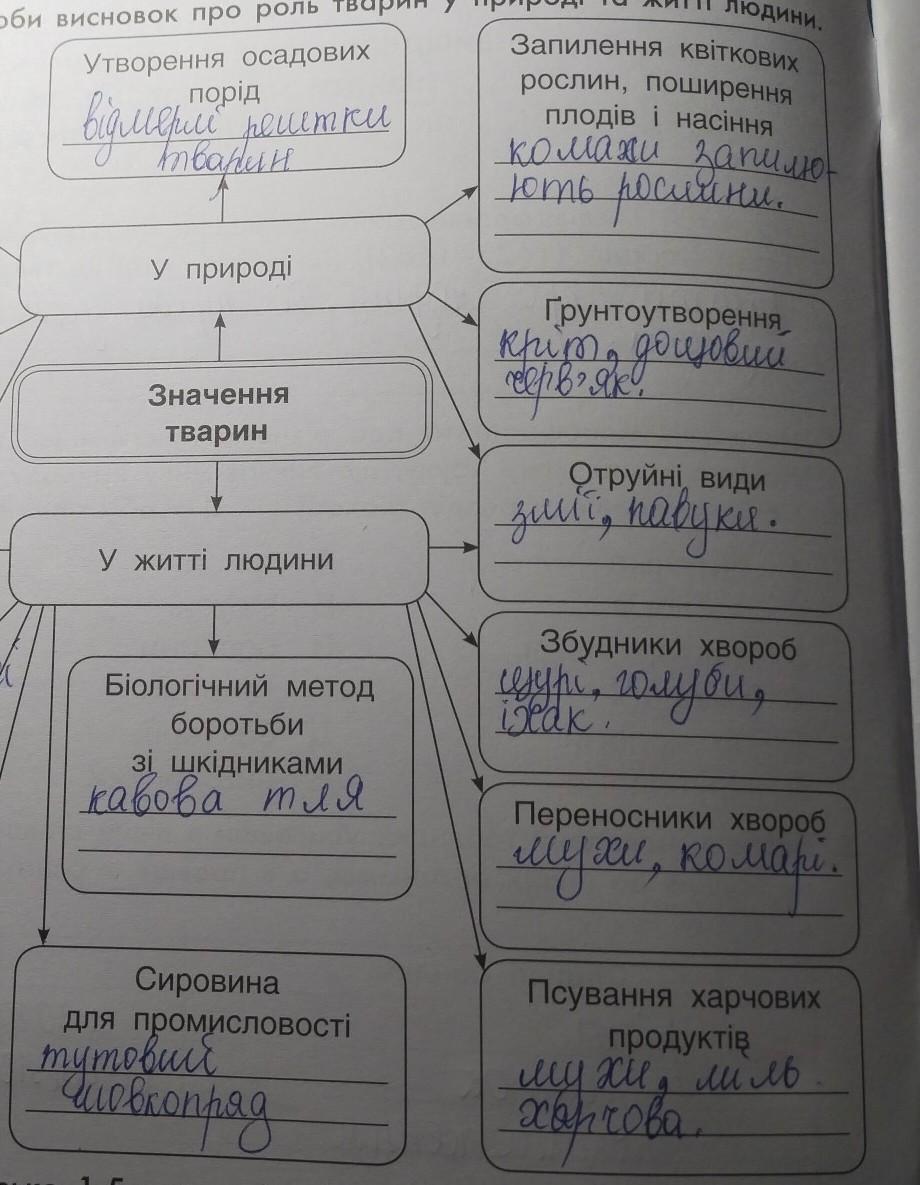 оби висновок про роль тварин у природі та житті людини.
Утворення осадових
порід
відмерлі рештки
тварин
Запилення квіткових
рослин, поширення
плодів і насіння
комахи запилю-
ють рослини.
У природі
Ґрунтоутворення
кріт, дощовий
черв'як.
Значення
тварин
Отруйні види
змії, павуки.
У житті людини
Збудники хвороб
щурі, голуби,
їжак.
Біологічний метод
боротьби
зі шкідниками
кавова тля
Переносники хвороб
мухи, комарі.
Сировина
для промисловості
тутовий
шовкопряд
Псування харчових
продуктів
мухи, миль
харчова.